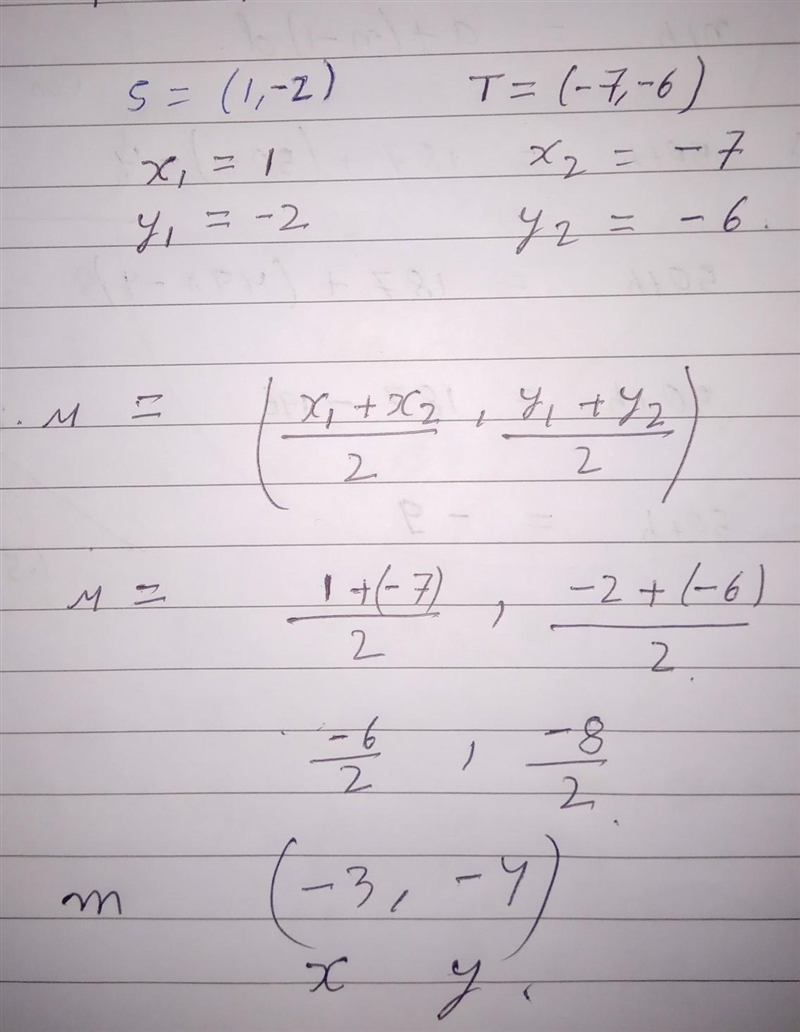 S = (1,-2) T = (-7,-6)
x₁ = 1 x₂ = -7
y₁ = -2 y₂ = -6.
M = (x₁ + x₂ / 2 , y₁ + y₂ / 2)
M = 1 + (-7) / 2 , -2 + (-6) / 2
-6/2 , -8/2
m (-3, -4)
x y